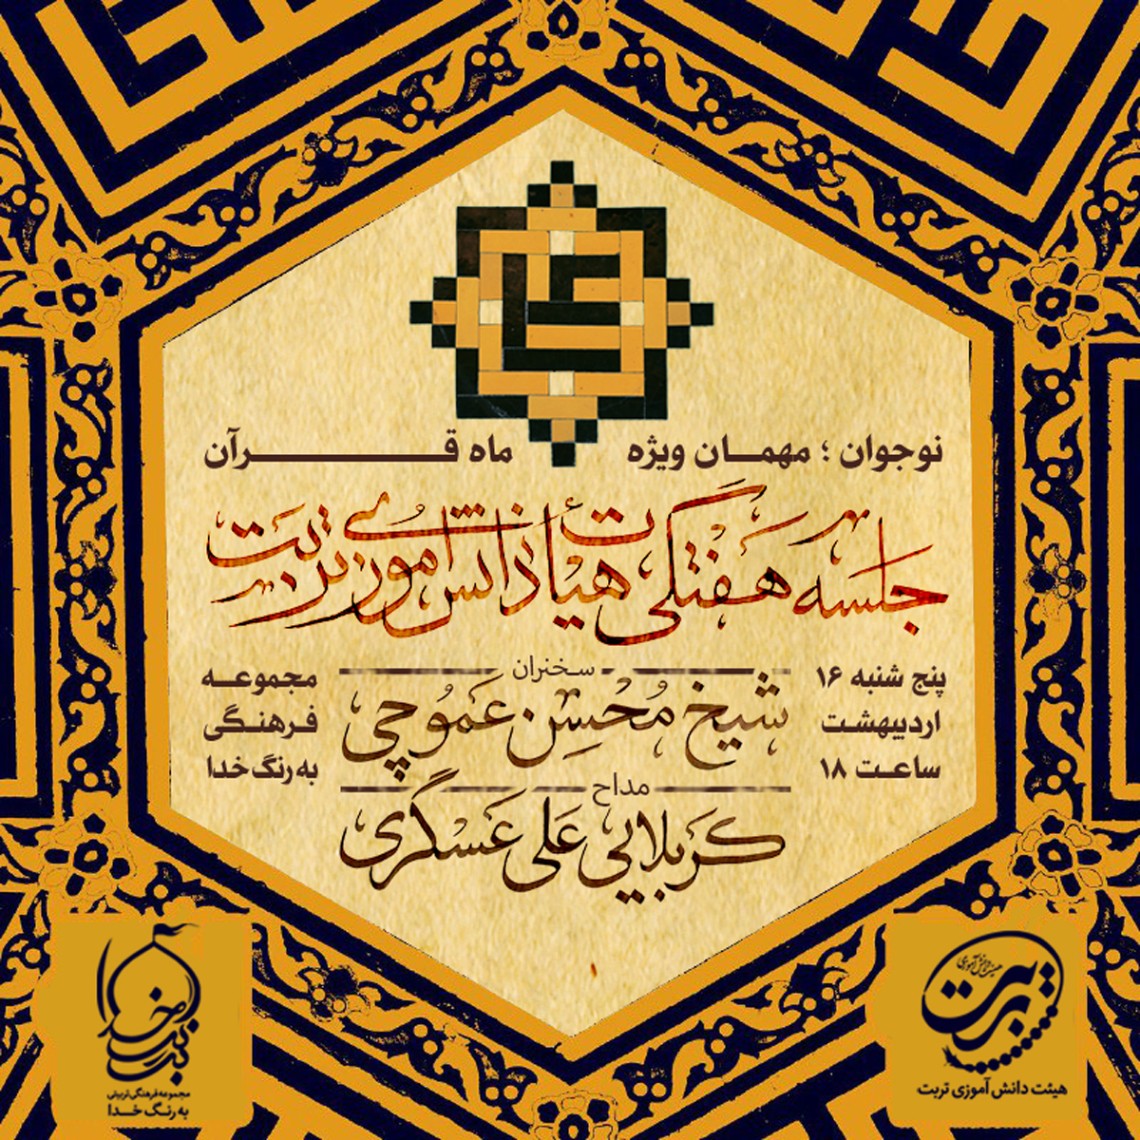 نوجوان ؛ مهمان ویژه ماه قرآن
جلسه هفتگی هیأت دانش آموزی تربت
سخنران
شیخ محسن عموچی
مداح
کربلایی علی عسگری
پنج شنبه ۱۶
اردیبهشت
ساعت ۱۸
مجموعه
فرهنگی
به رنگ خدا
تربت
هیئت دانش آموزی تربت
مجموعه فرهنگی تربیتی
به رنگ خدا